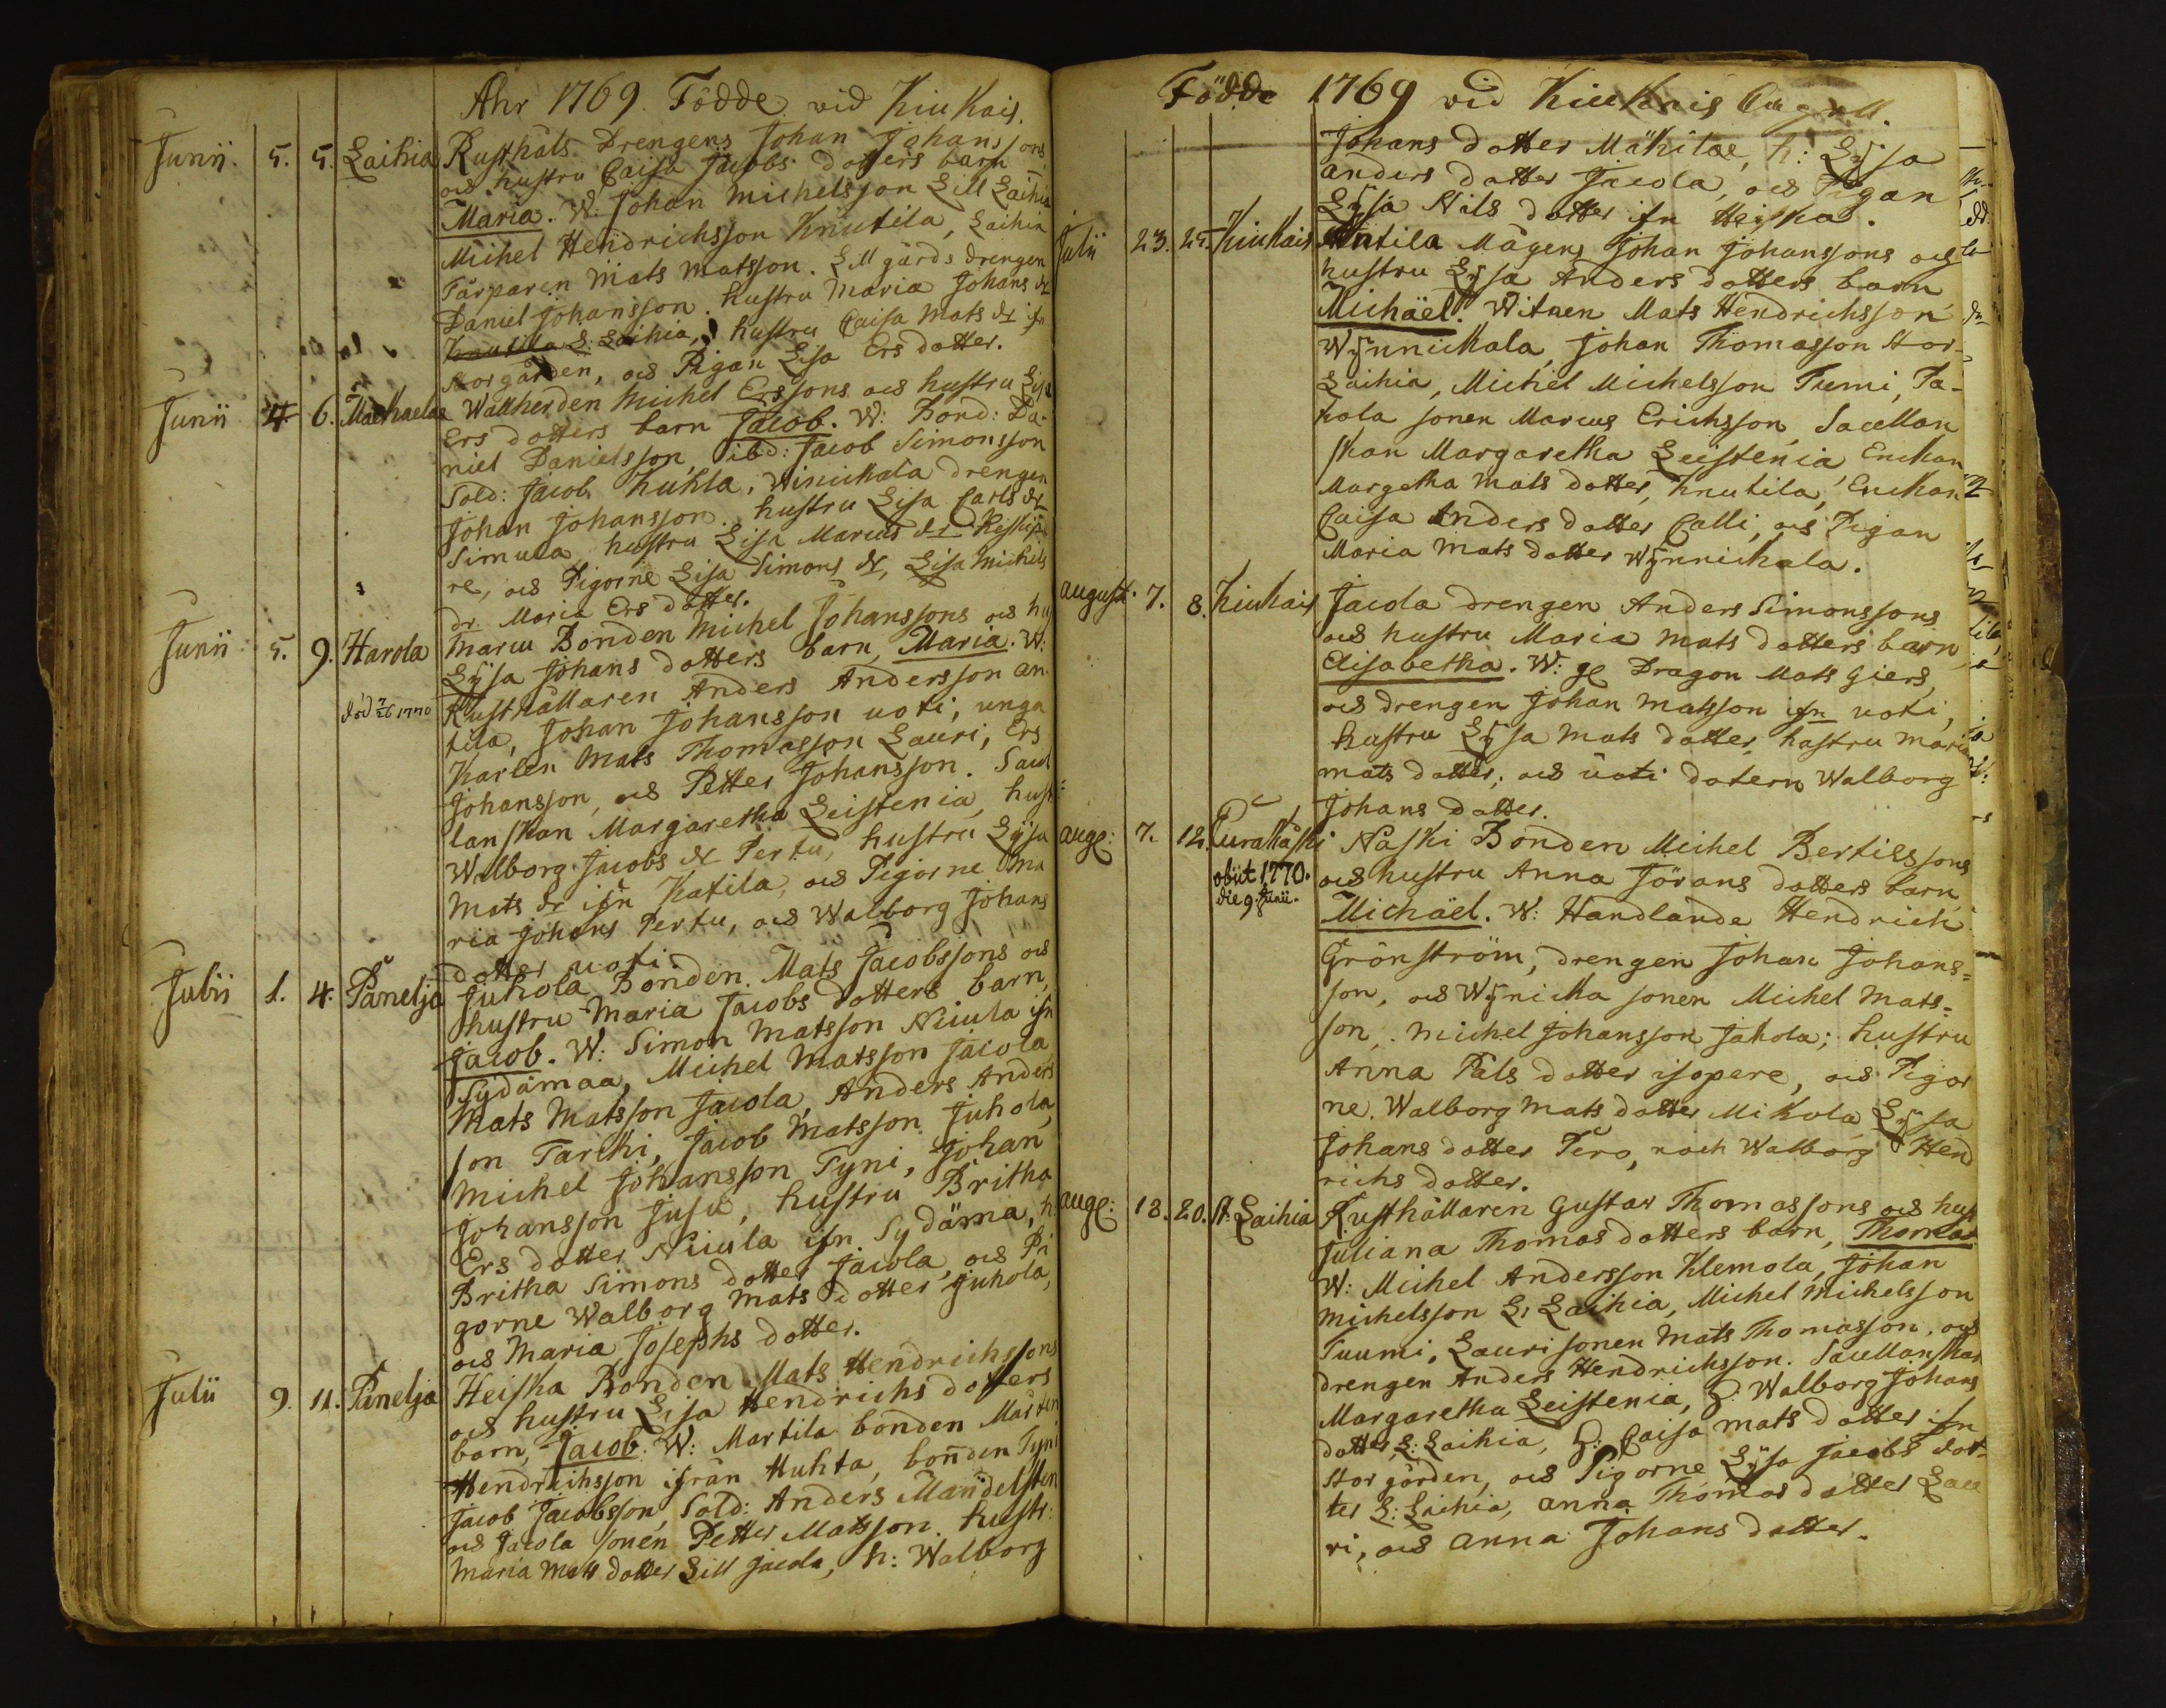 Ahr 1769. Födde vid Kiukais.
Junii. 5. 5. Laihia Rusthåls Drengens Johan Johanssons
och hustru Caisa Jacobs dotters barn
Maria. W: Johan Michelsson Lill Laihia
Michel Hendrichsson Knutila, Laihia
Tårparen Mats Matsson. Lill gårds drengen
Daniel Johansson. hustru Maria Johans dr
Knutila L: Laihia, hustru Caisa Mats dr ifr
Storgården, och Pigan Lisa Ers dotter.
Junii 4. 6. Wallherden Michel Erssons och hustru Lisa
Ers dotters barn Jacob. W: Bond: Da-
niel Danielsson, ibd: Jacob Simonsson
Sold: Jacob huhla, Winickala drengen
Johan Johansson. hustru Lisa Carls dr
Simula, hustru Lisa Marcus dr Keskip
re, och Pigorne Lisa Simons dr, Lisa Michels
dr. Maria Ers dotter.
Junii 5. 9. Harola Marcu Bonden Michel Johanssons och hu
Lÿsa Johans dotters barn, Maria. W:
död 7/26 1770 Rusthållaren Anders Andersson an
tila, Johan Johansson uoti, unga
Karlen Mats Thomasson Lauri, Ers
Johansson, och Petter Johansson. Sacel
lanskan Margaretha Leistenia, hust
Walborg Jacobs dr Pertu, hustru Lÿsa
Mats dr ifn Katila, och Pigorne Ma
ria Johans Pertu, och Walborg Johans
dotter uoti.
Julii 1. 4. Panelja Juhola Bonden. Mats Jacobssons och
hustru Maria Jacobs dotters barn,
Jacob. W: Simon Matsson Niuula ifn
Sydämaa, Michel Matsson Jacola,
Mats Matsson Jacola, Anders Anders
son Tarcki, Jacob Matsson Juhola,
Michel Johansson Tyni, Johan
Johansson Jusu, hustru Britha
Ers dotter Niuula ifn Sydäma, h.
Britha Simons dotter Jacola, och Pi
gorne Walborg Mats dotter Juhola,
och Maria Josephs dotter.
Julii 9. 11. Panelja Heiska Bonden Mats Hendrichssons
och hustru Lisa Hendrichs dotters
barn, Jacob. W: Martila bonden Mårten
Hendrichsson ifrån Huhta, bonden Tyni
Jacob Jacobsson, Sold: Anders Mandelsten
och Jacola sonen Petter Matsson. hustr:
Maria Mats dotter Lill Jacola, h: Walborg
Födde 1769 vid Kiukais
Johans dotter Mäkilae, h: Lÿsa
anders dotter Jacola, och Pigan
Lÿsa Nils dotter ifn Heiska.
Julii 23. 25. Kiukais Antila Mågens Johan Johanssons och
hustru Lÿsa Anders dotters barn
Michäel. Witnen Mats Hendrichsson
Wÿnnickala, Johan Thomasson Stor-
Laihia, Michel Michelsson Tumi, Ja-
kola sonen Marcus Erichsson, Sacellan
skan Margaretha Leistenia, Enckan
Margetha Mats dotter, Knutila, Enckan
Caisa Anders dotter Calli, och Pigan
Maria Mats dotter Wÿnnickala.
august. 7. 8. Kiukais Jacola drengen Anders Simonssons
och hustru Maria Mats dotters barn
Elisabetha. W: Dragon Mats Giers,
och drengen Johan Matsson ifn uoti,
hustru Lÿsa Mats dotter, hustru Maria
Mats dotter, och uoti dotern Walborg
Johans dotter.
aug: 7. 12. Eurakoski Naski Bonden Michel Bertilssons
obiit 1770. och hustru Anna Jörans dotters barn,
die 9. Junii. Michäel. W: Handlande Hendrich
Grönström, drengen Johan Johans=
son, och Wÿnicka sonen Michel Mats=
son, Michel Johansson Jakola; hustru
Anna Påls dotter isopere, och Pigor
ne. Walborg Mats dotter Mikola, Lÿsa
Johans dotter Tero, och Walborg Hend
richs dotter.
aug: 13. 20. St: Laihia Rusthållaren Gustav Thomassons och hust
Juliana Thomas dotters barn, Thomas
W: Michel Andersson Klemola, Johan
Michelsson L: Laihia, Michel Michelsson
Tuumi, Laurisonen Mats Thomasson, och
drengen Anders Hendrichsson. Sacellanskan
Margaretha Leistenia, h: Walborg Johans
dotter L: Laihia, h: Caisa Mats dotter ifn
Storgården, och Pigorne Lÿsa Jacobs dot-
ter L: Laihia, Anna Thomas dotter Lau
ri, och Anna Johans dotter.